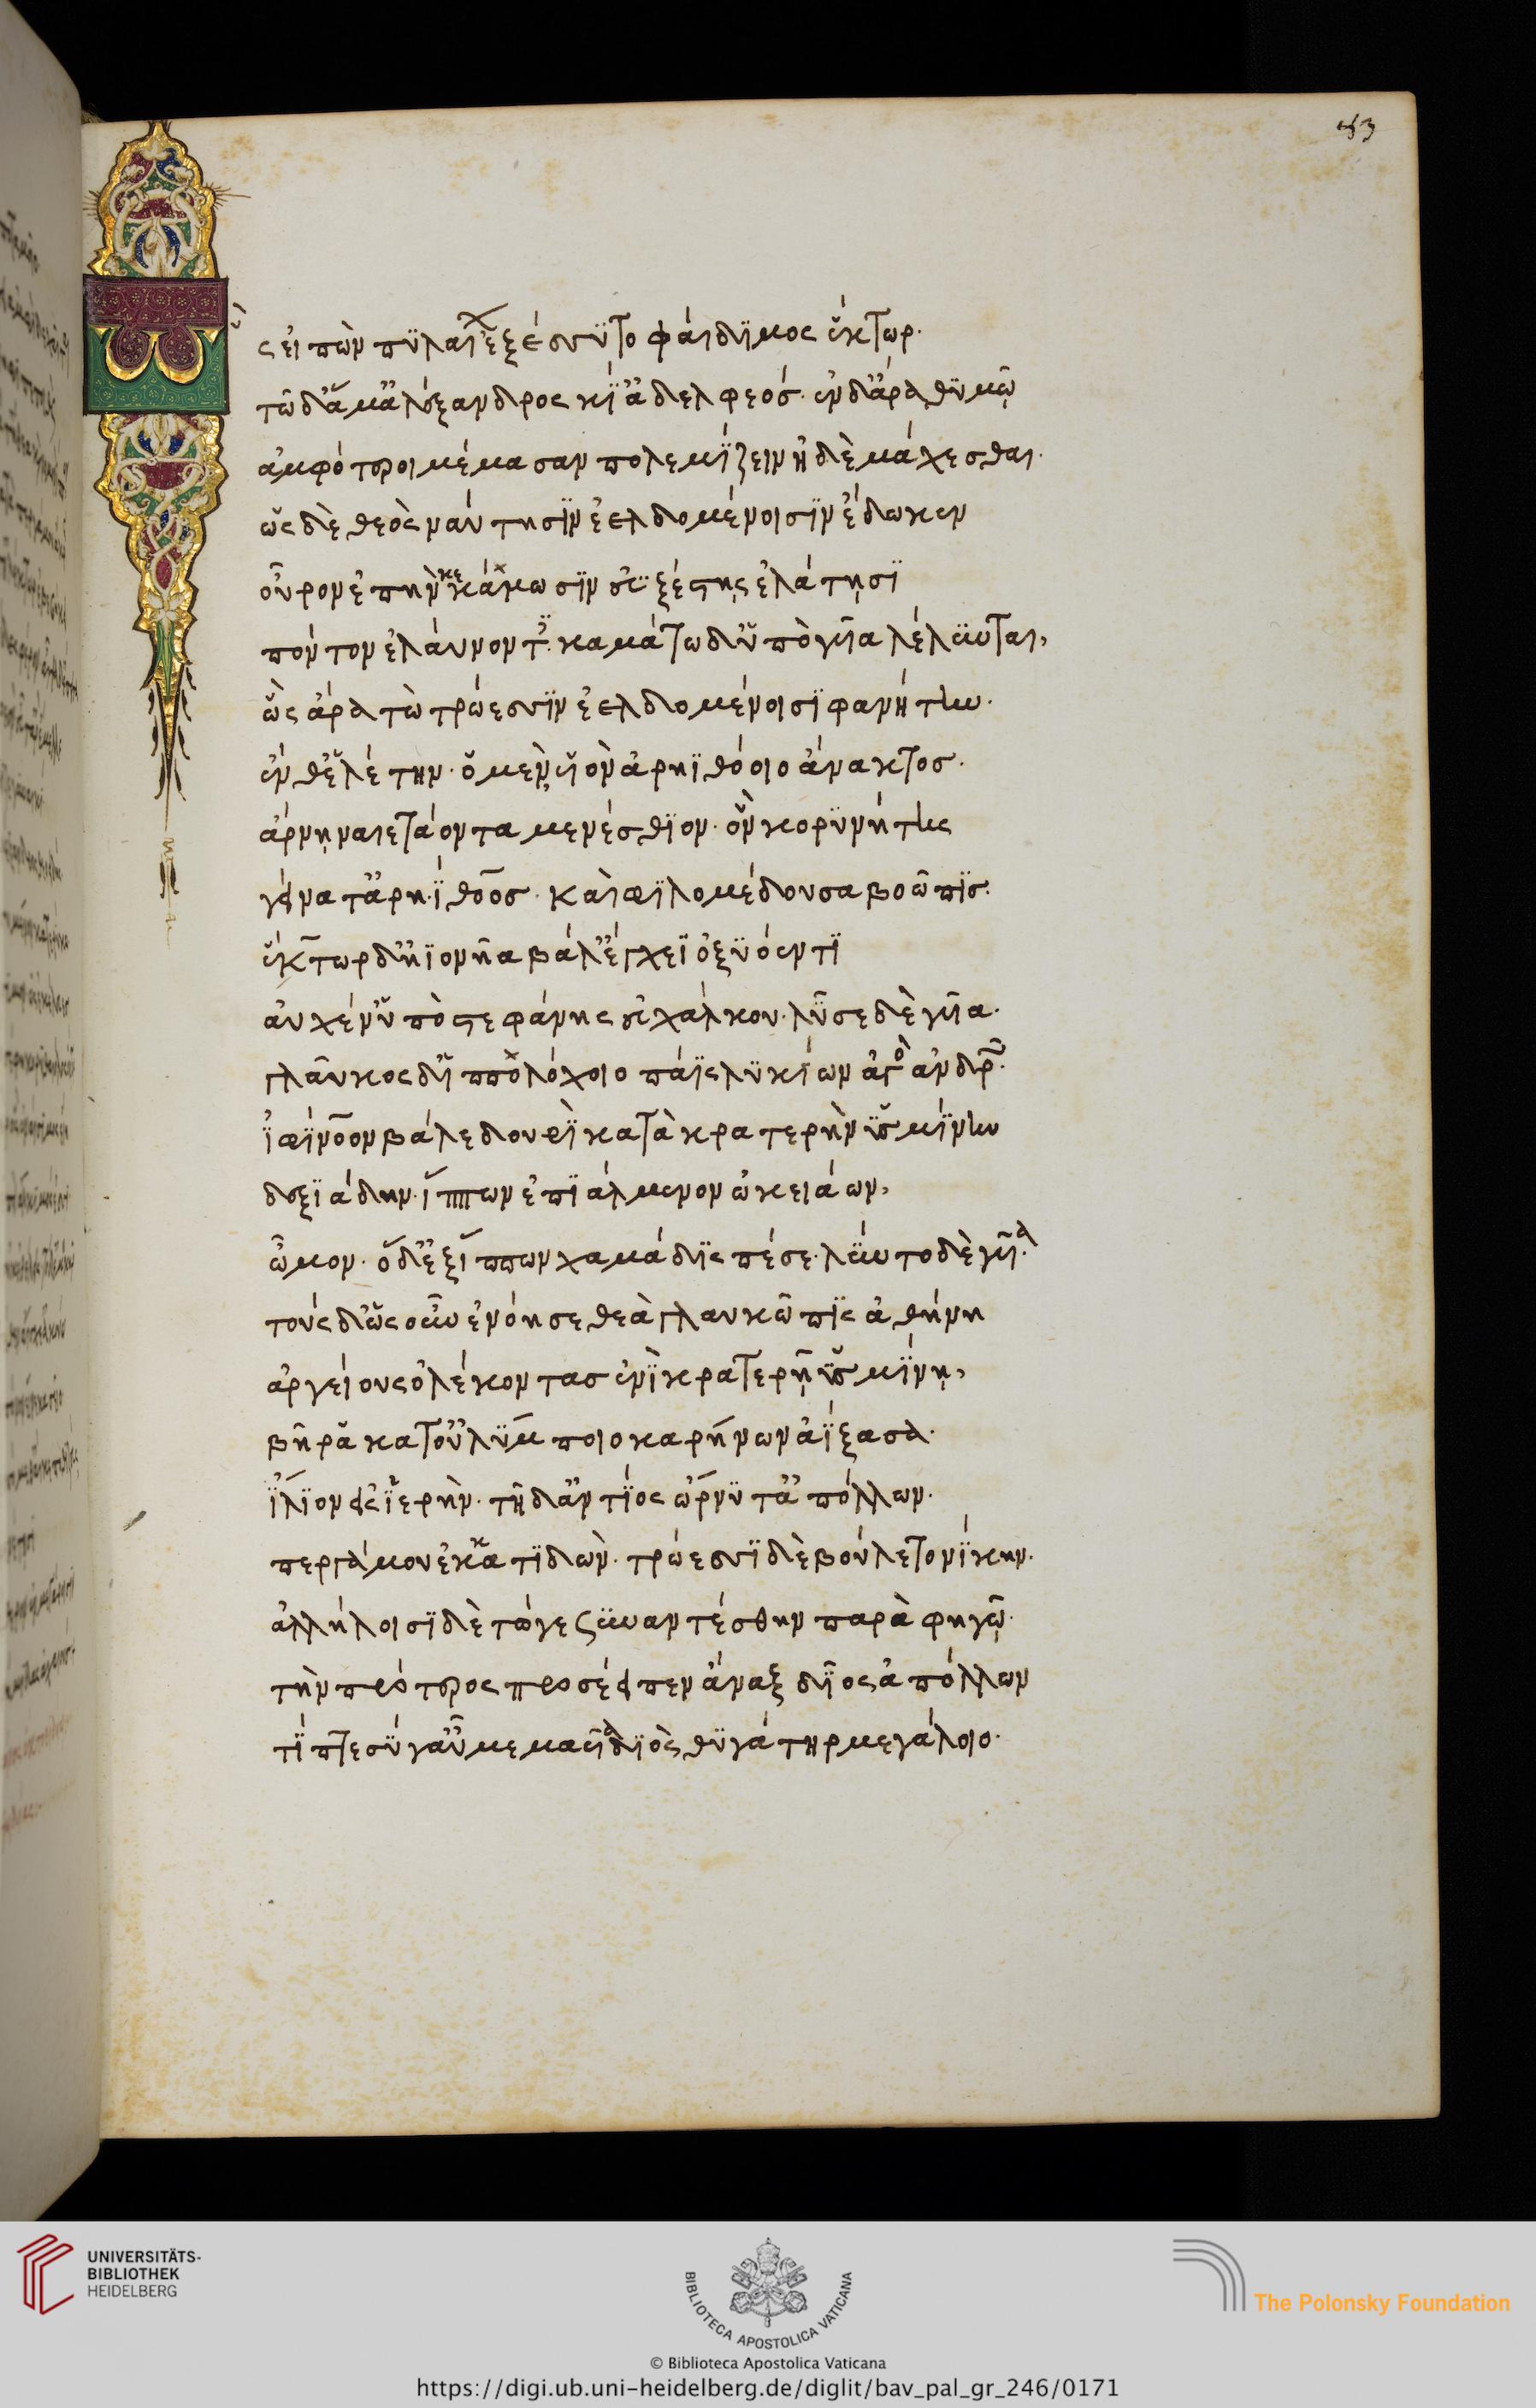 83
ὣς εἰπὼν πϋλαίων ἐξέσσϋτο φαίδϊμος ἕκτωρ·
τῶ δ' ἅμ' ἀλέξανδρος κϊ' ἀδελφεός· ἐν δ' ἄρα θϋμῷ
ἀμφότεροι μέμασαν πολεμΐζειν ἠδὲ μάχεσθαι·
ὡς δὲ θεὸς ναύτησϊν ἐελδομένοισϊν ἔδωκεν
οὖρον ἐπὴν κεκάμωσϊν ἐϋξέστῃς ἐλάτῃσϊ
πόντον ἐλαύνοντες· καμάτω δ' ὑπὸ γυῖα λέλϋνται,
ὣς ἄρα τὼ τρώεσσϊν ἐελδομένοισϊ φανήτην·
ἔνθ' ἑλέτην· ὁ μὲν υἱὸν ἀρηϊθόοιο ἄνακτος·
ἄρνῃ ναιετάοντα μενέσθϊον· ὃν κορϋνήτης
γείνατ' ἀρηΐθοος· καὶ φϊλομέδουσα βοῶπϊς·
ἕκτωρ δ' ἠϊονῆα βάλ' ἔγχεϊ ὀξϋόεντϊ
αὐχέν' ὑπὸ στεφάνης εὐχάλκου· λῦσε δὲ γυῖα·
γλαῦκος δ' ἱππολόχοιο πάϊς λϋκίων ἀγὸς ἀνδρῶν·
ἰφΐνοον βάλε δουρὶ κατὰ κρατερὴν ὑσμΐνην
δεξϊάδην· ἵππων ἐπϊάλμενον ὠκειάων,
ὦμον· ὁ δ' ἐξ ἵππων χαμάδϊς πέσε· λΰντο δὲ γυῖα·
τοὺς δ' ὡς οὖν ἐνόησε θεὰ γλαυκῶπϊς ἀθήνη
ἀργείους ὀλέκοντας ἐνὶ κρατερῇ ὑσμΐνῃ,
βῆ ῥα κατ' οὐλΰμποιο καρήνων ἀΐξασα·
ἴ̈λϊον εἰς ἱερήν· τῇ δ' ἀντΐος ὤρνϋτ' ἀπόλλων·
περγάμου ἐκκατϊδών· τρώεσσϊ δὲ βούλετο νΐκην·
ἀλλήλοισϊ δὲ τώγε ξϋναντέσθην παρὰ φηγῷ·
τὴν πρότερος προσέειπεν ἄναξ δϊὸς ἀπόλλων
τΐπτε σὺ γ' αὖ μεμαυῖα δϊὸς θϋγάτηρ μεγάλοιο·
UNIVERSITÄTS-
BIBLIOTHEK
HEIDELBERG
BIBLIOTECA APOSTOLICA VATICANA
The Polonsky Foundation
© Biblioteca Apostolica Vaticana
https://digi.ub.uni-heidelberg.de/diglit/bav_pal_gr_246/0171